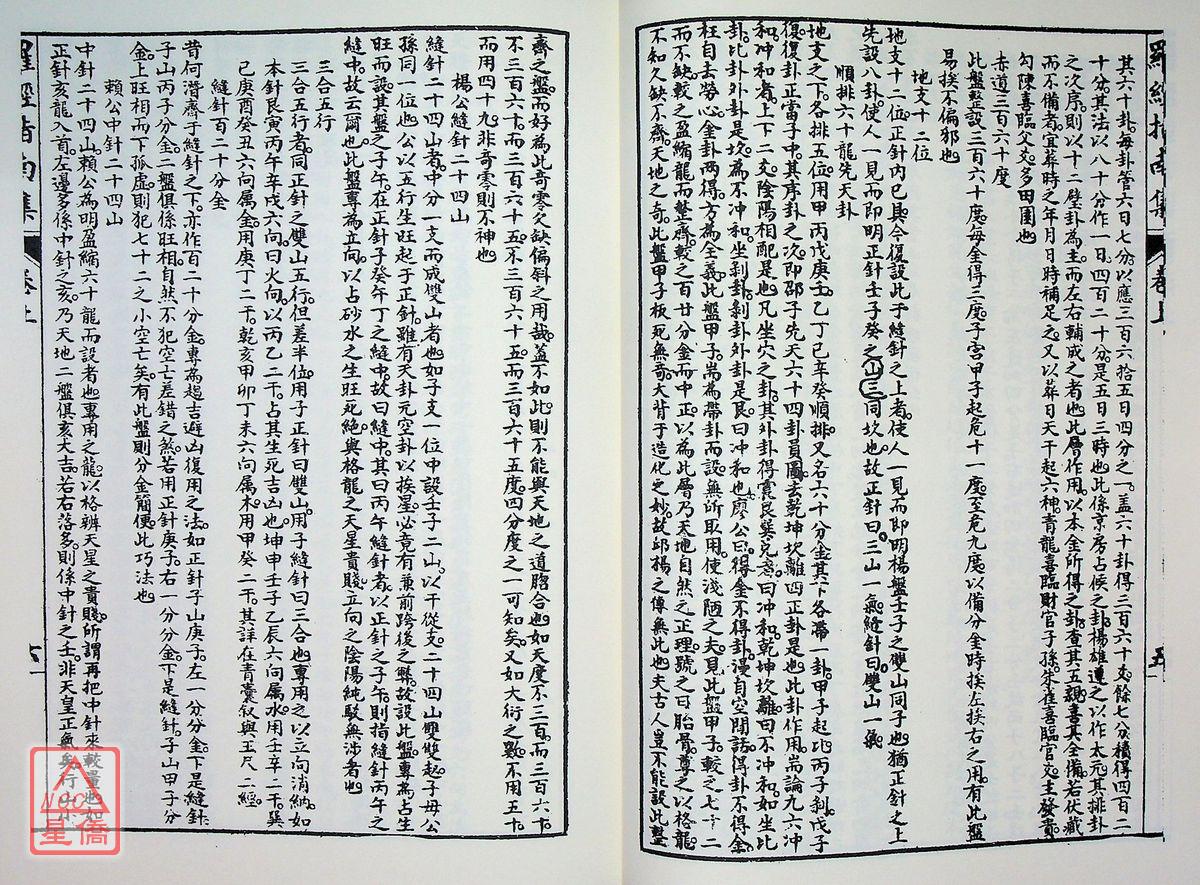 羅經指南集
卷上
五
其六十卦每卦管六日七分以應三百六拾五日四分之一蓋六十卦得三百六十爻餘七分積得四百二
十分其法以八十分作一日四百二十分是五日三時也此係京房占候之卦揚雄遵之以作太元其排卦
之次序則以十二壁卦為主而左右輔成之者也此層作用以本金所得之卦查其五親喜其全備若伏藏
而不備者宜葬時之年月日時補足之又以葬日天干起六神青龍喜臨財官子孫朱雀喜臨官父主發貴
勾陳喜臨父爻多田園也
赤道三百六十度
此盤整設三百六十度每全得三度子宮甲子起危十一度至危九度以備分金時挨左挨右之用有此盤
易挨不偏邪也
地支十二位
地支十二位正針內已具今復設此于縫針之上者使人一見而即明楊盤壬子之雙山同子也猶正針之上
先設八卦使人一見而即明正針壬子癸之山三同坎也故正針曰三山一氣縫針曰雙山一氣
順排六十龍先天卦
地支之下各排五位用甲丙戊庚壬乙丁己辛癸順排又名六十分金其下各滯一卦甲子起比丙子剝戊子
復復卦正當子中其序卦之次即邵子先天六十四卦員圖去乾坤坎離四正卦是也此卦作用耑論九六冲
和冲和者上下二爻陰陽相配是也凡坐穴之卦其外卦得震艮巽兌曰冲和乾坤坎離曰不冲和如坐比
卦比卦外卦是坎為不冲和坐剝卦剝卦外卦是艮曰冲和也廖公曰得金不得卦漫自空閒話得卦不得金
枉自去勞心金卦兩得方為全義此盤甲子耑為帶卦而設無所取用使淺陋之夫見此盤甲子較之七十二
而不缺較之盈縮龍而整齊較之百廿分金而中正以為此層乃天地自然之正理號之曰胎骨尊之以格龍
不知久缺不齊天地之奇此盤甲子板死無奇大背于造化之妙故邱楊之傳無此也夫古人豈不能設此整
齊之盤而好為此奇零欠缺偏斜之用哉蓋不如此則不能與天地之道脗合也如天度不三百而三百六十
不三百六十而三百六十五不三百六十五而三百六十五度四分度之一可知矣又如大衍之數不用五十
而用四十九非奇零則不神也
楊公縫針二十四山
縫針二十四山者中分一支而成雙山者也如子支一位中設壬子二山以干從支二十四山雙雙起子母公
孫同一位也公以五行生旺起于正針雖有天卦元空卦以挨星必竟有兼前跨後之弊故設此盤專為占生
旺而設其盤之子午在正針子癸午丁之縫中故曰縫中其曰丙午縫針者以正針之子午則指縫針丙午之
縫中故云爾也此盤專為立向以占砂水之生旺死絕與格龍之天星貴賤立向之陰陽純駁無涉者也
三合五行
三合五行者同正針之雙山五行但差半位用子正針曰雙山用子縫針曰三合也專用之以立向消納如
本針艮寅丙午辛戌六向曰火向以丙乙二干占其生死吉凶也坤申壬子乙辰六向屬水用壬辛二干巽
己庚酉癸丑六向屬金用庚丁二干乾亥甲卯丁未六向屬木用甲癸二干其詳在青囊敘與玉尺二經
縫針百二十分金
昔何潛齋于縫針之下亦作百二十分金專為趨吉避凶復用之法如正針子山庚子左一分分金下是縫針
子山丙子分金二盤俱係旺相自然不犯空亡差錯之煞若用正針庚子右一分分金下是縫針子山甲子分
金上旺相而下孤虛則犯七十二之小空亡矣有此盤則分金簡便此巧法也
賴公中針二十四山
中針二十四山賴公為明盈縮六十龍而設者也專用之龍以格辨天星之貴賤所謂再把中針來較量也如
正針亥龍入首左邊多係中針之亥乃天地二盤俱亥大吉若右落多則係中針之壬非天皇正氣矣行山小
羅經指南集
卷上
六
星僑